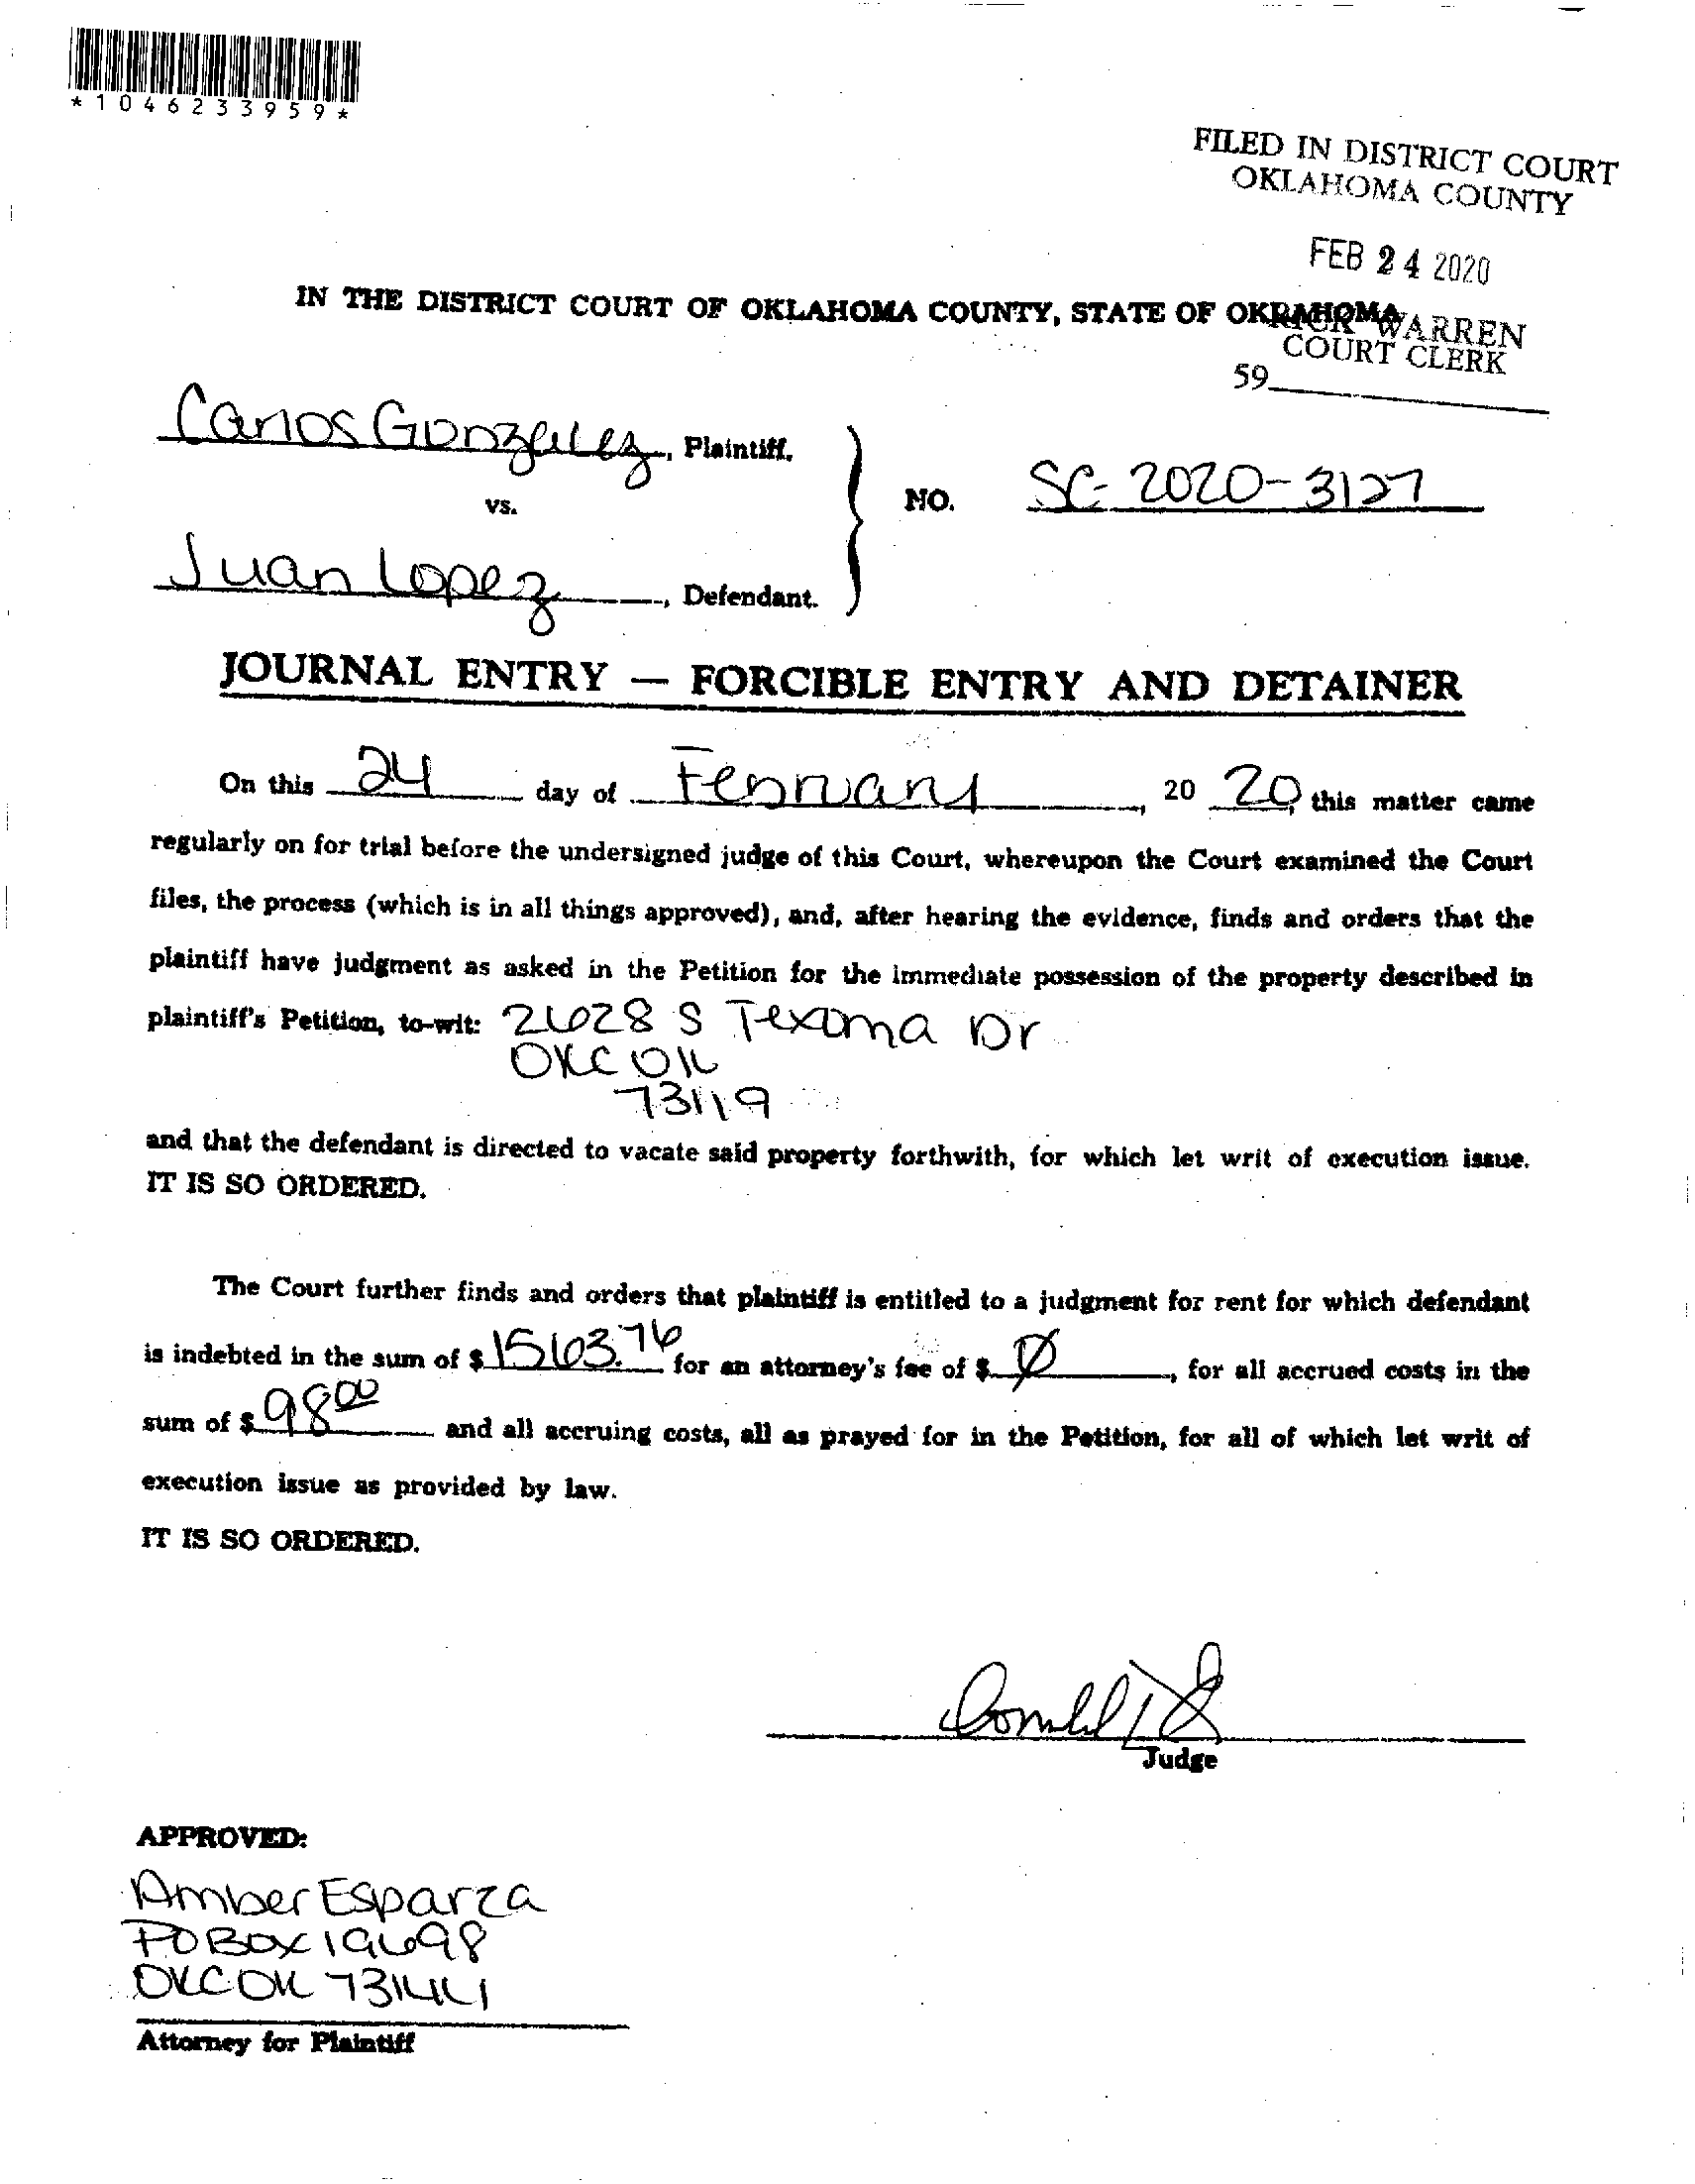 *1046233959*
FILED IN DISTRICT COURT
OKLAHOMA COUNTY
FEB 24 2020
IN THE DISTRICT COURT OF OKLAHOMA COUNTY, STATE OF OKLAHOMA
RICK WARREN
COURT CLERK
59
Carlos Gonzalez, Plaintiff,
vs.
NO. SC-2020-3127
Juan Lopez, Defendant.
JOURNAL ENTRY — FORCIBLE ENTRY AND DETAINER
On this 24 day of February, 20 20, this matter came
regularly on for trial before the undersigned judge of this Court, whereupon the Court examined the Court
files, the process (which is in all things approved), and, after hearing the evidence, finds and orders that the
plaintiff have judgment as asked in the Petition for the immediate possession of the property described in
plaintiff's Petition, to-wit: 2628 S Texoma Dr
OKC OK
73119
and that the defendant is directed to vacate said property forthwith, for which let writ of execution issue.
IT IS SO ORDERED.
The Court further finds and orders that plaintiff is entitled to a judgment for rent for which defendant
is indebted in the sum of $ 1563.76 for an attorney's fee of $ Ø, for all accrued costs in the
sum of $ 98.00 and all accruing costs, all as prayed for in the Petition, for all of which let writ of
execution issue as provided by law.
IT IS SO ORDERED.
Judge
APPROVED:
Amber Esparza
PO Box 19698
OKC OK 73144
Attorney for Plaintiff